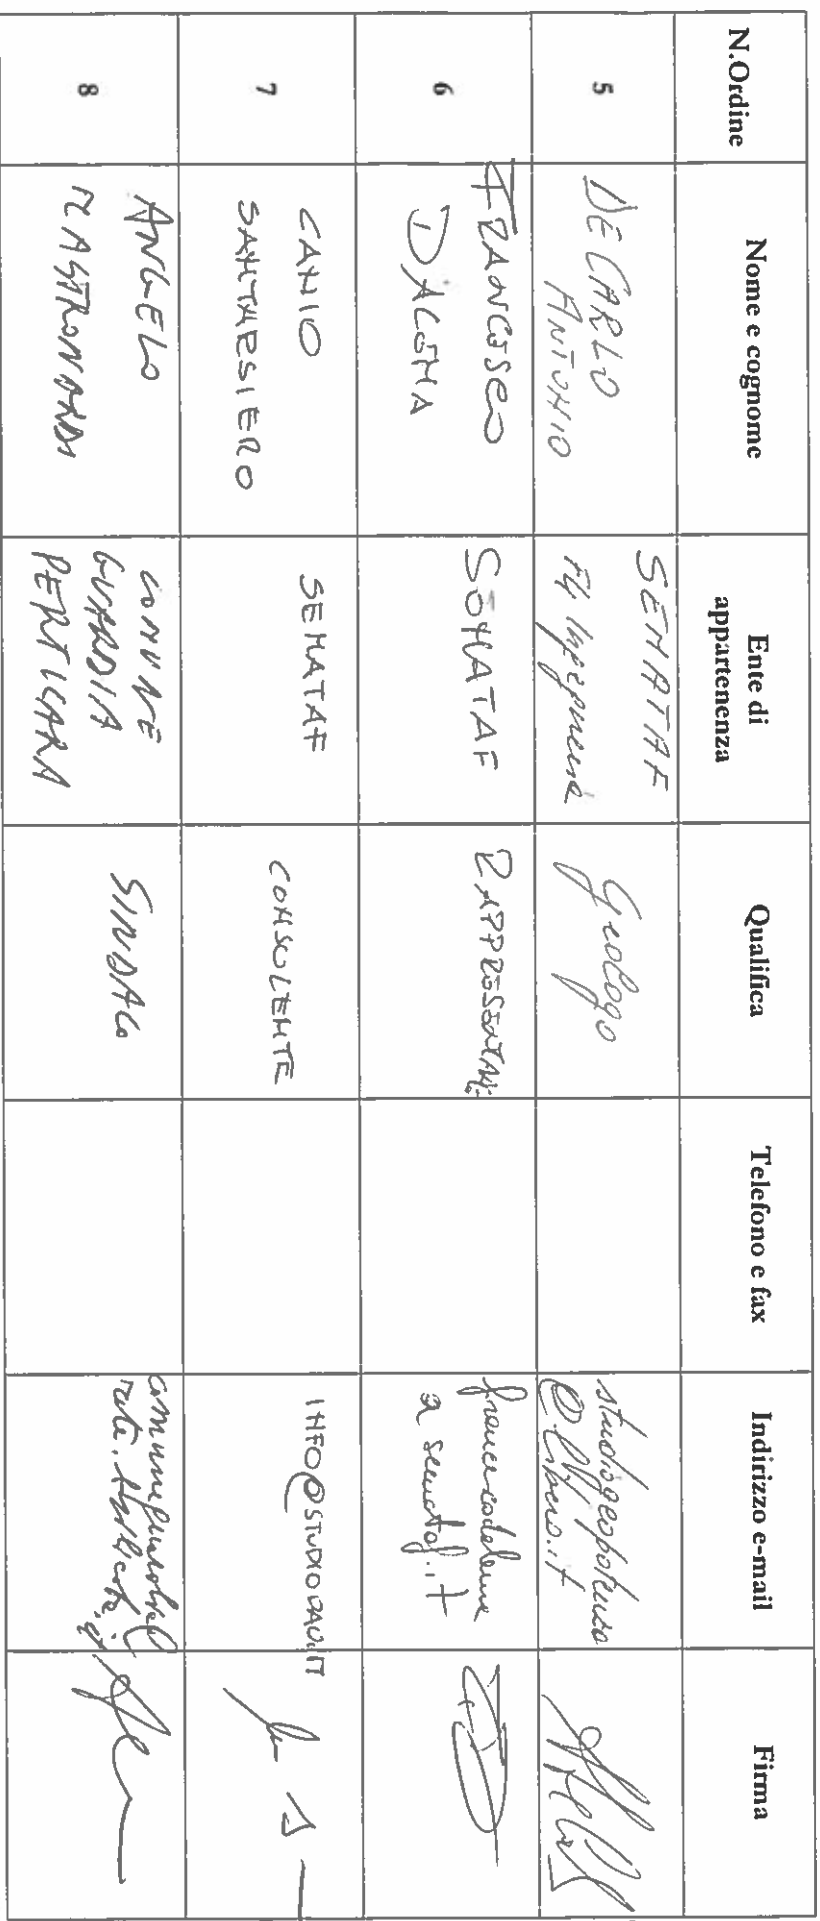 N.Ordine
Nome e cognome
Ente di
appartenenza
Qualifica
Telefono e fax
Indirizzo e-mail
Firma
5
DE CARLO
ANTONIO
SEMATAF
F4 Ingegneria
geologo
studiogeopotenza
@libero.it
6
FRANCESCO
DALEMA
SEMATAF
RAPPRESENTANTE
7
CANIO
SANTARSIERO
SEMATAF
CONSULENTE
8
ANGELO
MASTRONARDI
COMUNE
GUARDIA
PERTICARA
SINDACO